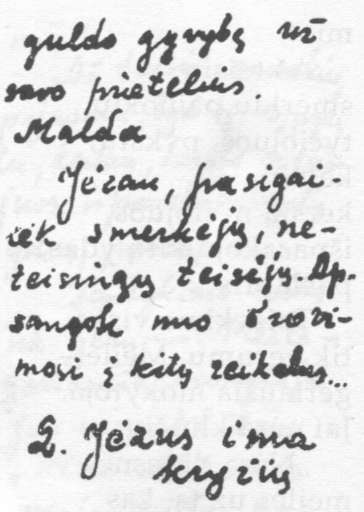 guldo gyvybę už
savo prietelius.
Malda
Jėzau, pasigai-
lėk smerkėjų, ne-
teisingų teisėjų. Ap-
saugok nuo brovi-
mosi į kitų reikalus...
2. Jėzus ima
kryžių